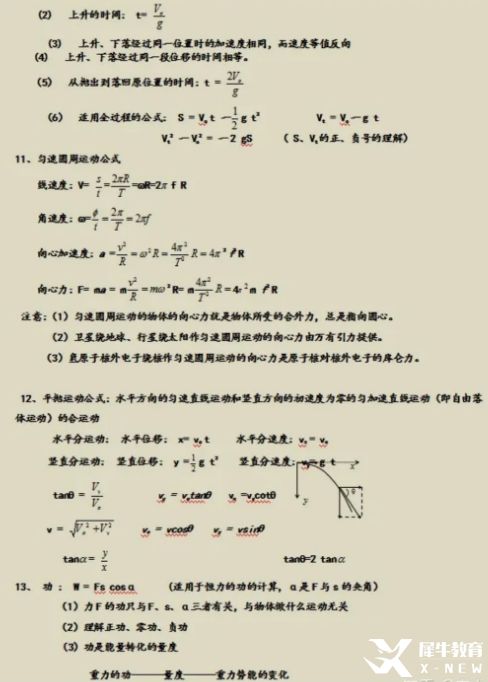 (2) 上升的时间：t= V₀/g
(3) 上升、下落经过同一位置时的加速度相同，而速度等值反向
(4) 上升、下落经过同一段位移的时间相等。
(5) 从抛出到落回原位置的时间：t = 2V₀/g
(6) 适用全过程的公式：S = V₀ t — 1/2 g t² Vₜ = V₀—g t
Vₜ² —V₀² = —2 gS （ S、Vₜ的正、负号的理解）
11、匀速圆周运动公式
线速度：V= s/t = 2πR/T =ωR=2π f R
角速度：ω= φ/t = 2π/T = 2πf
向心加速度：a = v²/R = ω² R = 4π²/T² R = 4π² f² R
向心力：F= ma = m v²/R = mω² R= m 4π²/T² R = 4π² m f² R
注意：(1) 匀速圆周运动的物体的向心力就是物体所受的合外力，总是指向圆心。
(2) 卫星绕地球、行星绕太阳作匀速圆周运动的向心力由万有引力提供。
(3) 氢原子核外电子绕核作匀速圆周运动的向心力是原子核对核外电子的库仑力。
12、平抛运动公式：水平方向的匀速直线运动和竖直方向的初速度为零的匀加速直线运动（即自由落
体运动）的合运动
水平分运动： 水平位移： x= v₀ t 水平分速度：vₓ = v₀
竖直分运动： 竖直位移： y = 1/2 g t² 竖直分速度：vᵧ= g t
x
θ
y
tanθ = Vᵧ/V₀ vᵧ = v₀tanθ v₀ =vᵧcotθ
v = √(V₀² + Vᵧ²) v₀ = vcosθ vᵧ = vsinθ
tanα = y/x tanθ=2 tanα
13、 功 ： W = Fs cos α （适用于恒力的功的计算，α是 F 与 s 的夹角）
(1) 力 F 的功只与 F、s、α三者有关，与物体做什么运动无关
(2) 理解正功、零功、负功
(3) 功是能量转化的量度
重力的功------量度------重力势能的变化
犀牛教育
X-NEW